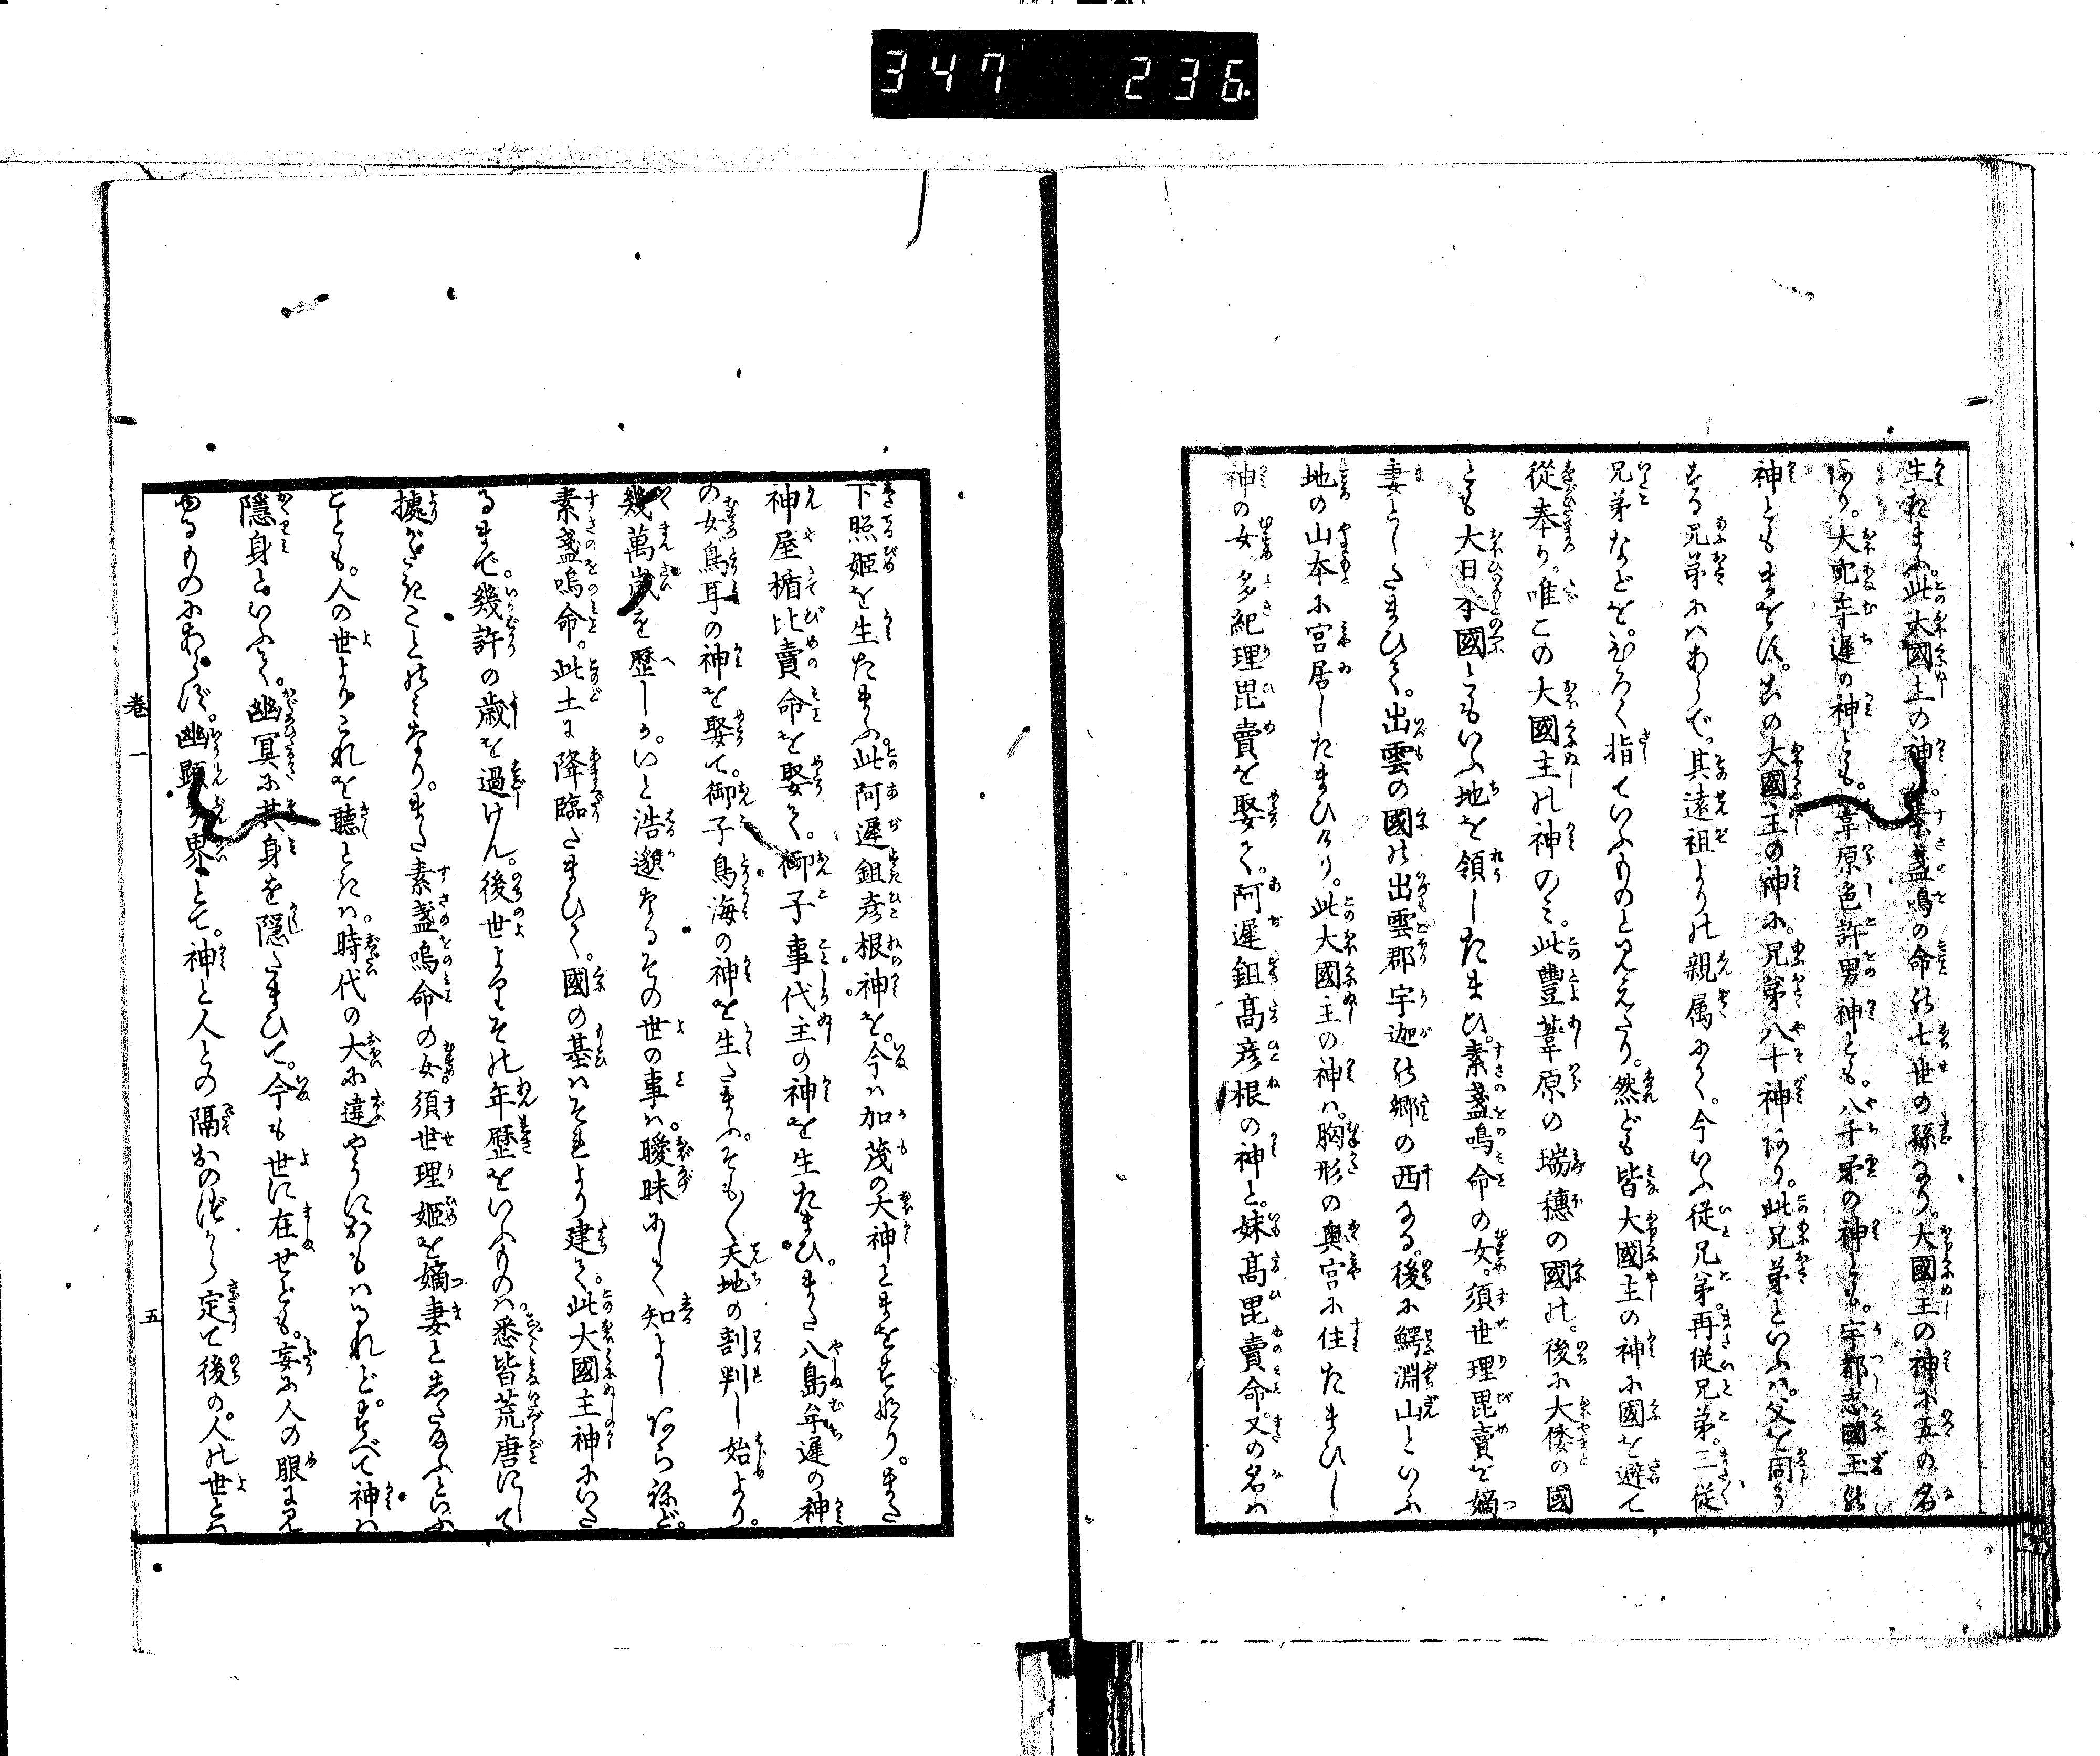 347 236
生たまふ。此大國主の神ハ。素盞嗚の命の七世の孫なり。大國主の神に五の名
あり。大己牟遅の神とも。葦原色許男神とも。八千矛の神とも。宇都志國玉の
神ともまをす。此の大國主の神に。兄弟八十神あり。此兄弟といふハ。父を同う
する兄弟にハあらで。其遠祖よりの親属にて。今いふ従兄弟。再従兄弟。三従
兄弟などを。ひろく指ていふものと見えたり。然ども皆大國主の神に國を避て
従奉り。唯この大國主の神のミ。此豐葦原の瑞穗の國の。後に大倭の國
とも大日本國ともいふ地を領したまひ。素盞嗚命の女。須世理毘賣を嫡
妻としたまひて。出雲の國の出雲郡宇迦の郷の西なる。後に鰐淵山といふ
地の山本に宮居したまひけり。此大國主の神ハ。胸形の奥宮に住たまひし
神の女多紀理毘賣を娶て。阿遅鉏高彦根の神と。妹高毘賣命又の名ハ
下照姫を生たまふ。此阿遅鉏彦根神を。今ハ加茂の大神とまをすなり。また
神屋楯比賣命を娶て。御子事代主の神を生たまひ。また八島牟遅の神
の女鳥耳の神を娶て。御子鳥海の神を生たまふ。そも〱天地の割判し始より。
幾萬歳を歴しか。いと浩邈なるその世の事ハ。曖昧にして知よしあらねど。
素盞嗚命。此土に降臨たまひて。國の基ハそれより建て。此大國主神にいた
るまで。幾許の歳を過けん。後世よりその年歴をいふものハ。悉皆荒唐にして
據がたきことのミなり。また素盞嗚命の女。須世理姫を嫡妻と志たまふといふ
ことも。人の世よりこれを聽ときハ。時代の大に違やうにおもハるれど。すべて神ハ
隱身といふて。幽冥に其身を隱したまひて。今も世に在せども。妄に人の眼に見
ゆるものにあらず。幽顯の界とて。神と人との隔おのづから定て後の。人の世とハ
卷一
五